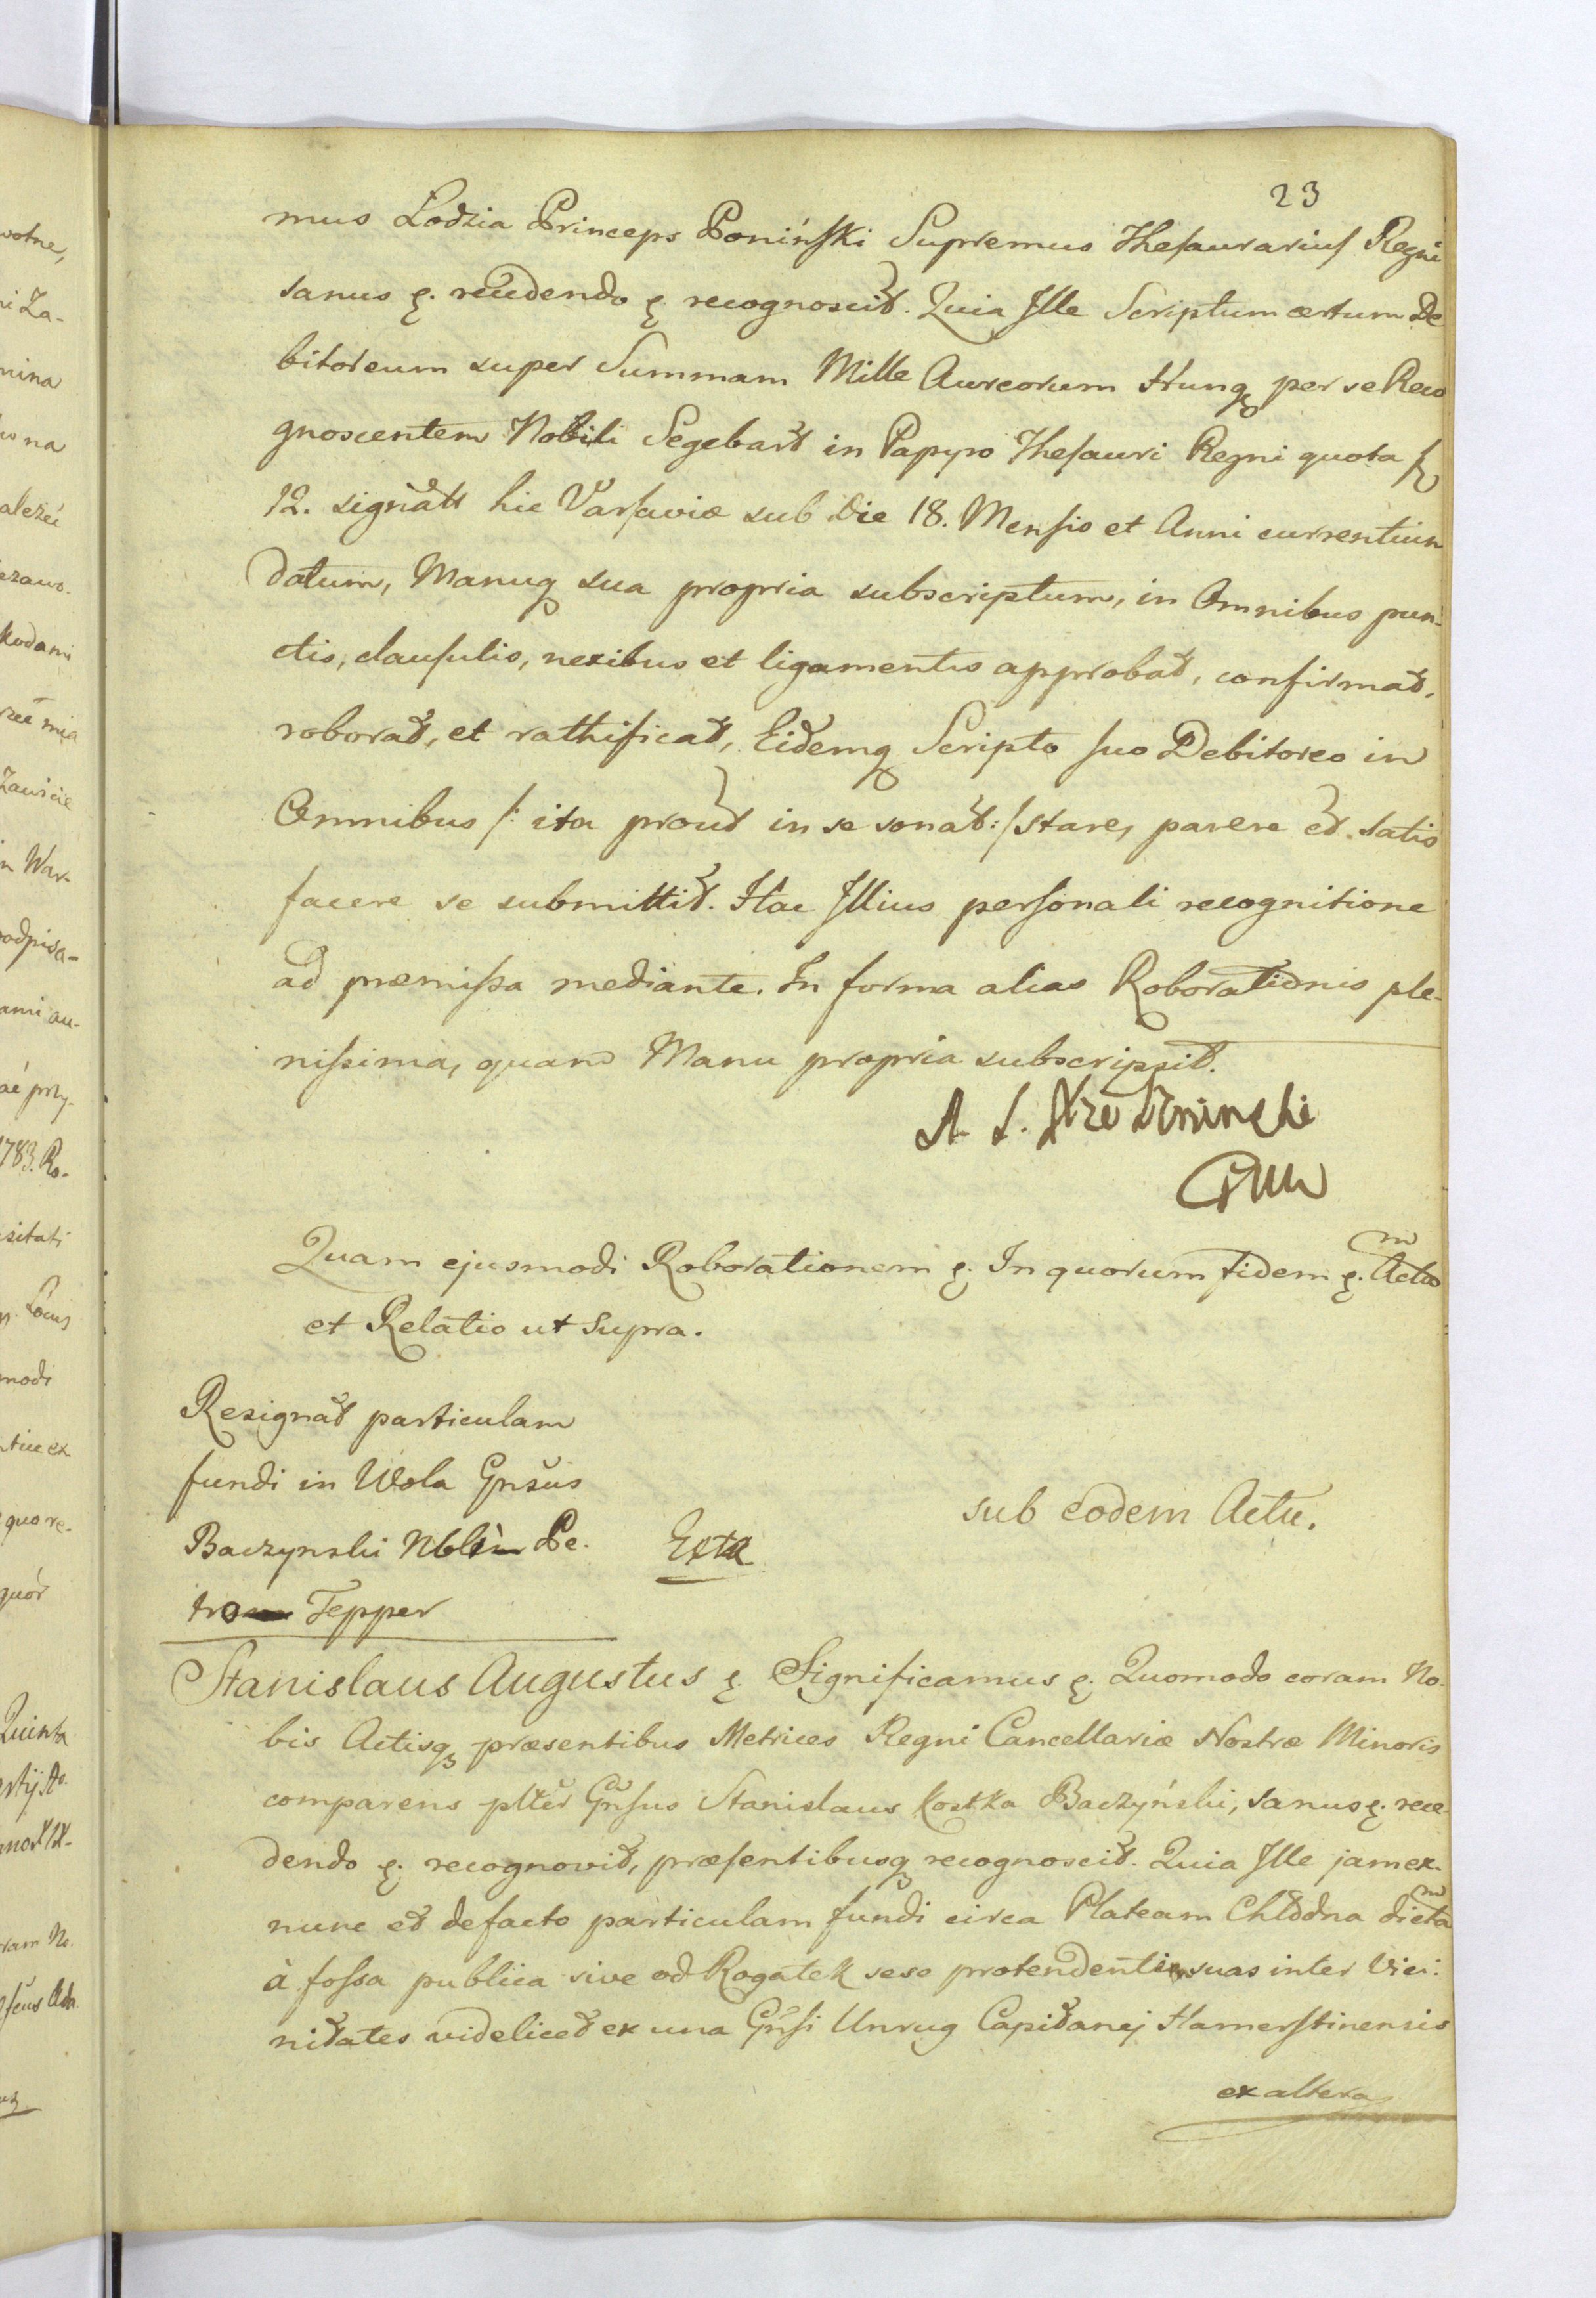 23
mus Lodzia Princeps Poniński Supremus Thesaurarius Regni
sanus ę. recedendo ę. recognoscit. Quia Ille Scriptum certum De
bitoreum super Summam Mille Aureorum Hung. per se Reco
gnoscentem Nobili Segebart in Papyro Thesauri Regni quota
12. signatt hic Varsaviæ sub Die 18. Mensis et Anni currentium
datum, Manuq sua propria subscriptum, in Omnibus pun-
ctis, clausulis, nexibus et ligamentis approbat, confirmat,
roborat, et rathificat, Eidemq Scripto suo Debitoreo in
Omnibus /: ita prout in se sonat :/ stare, parere et satis
facere se submittit. Hac Illius personali recognitione
ad præmissa mediante. In forma alias Roborationis ple-
nissima, quam Manu propria subscripsit.
A. L. Poninski
Quam ejusmodi Roborationem ę. In quorum fidem ę. Actum
et Relatio ut supra.
Resignat particulam
fundi in Wola Gnsus
Baczynski Nbli Pe-
tro Tepper
Exta
sub eodem Actu.
Stanislaus Augustus ę. Significamus ę. Quomodo coram No-
bis Actisq præsentibus Metrices Regni Cancellariæ Nostræ Minoris
comparens plter Gnsus Stanislaus Kostka Baczyński, sanus ę. rece-
dendo ę. recognovit, præsentibusq recognoscit. Quia Ille jam ex-
nunc et defacto particulam fundi circa Plateam Chłodna dictam
à fossa publica sive od Rogatek sese protendentis suas inter Vici-
nitates videlicet ex una Gnsi Unrug Capitanej Hamerstinensis
ex altera